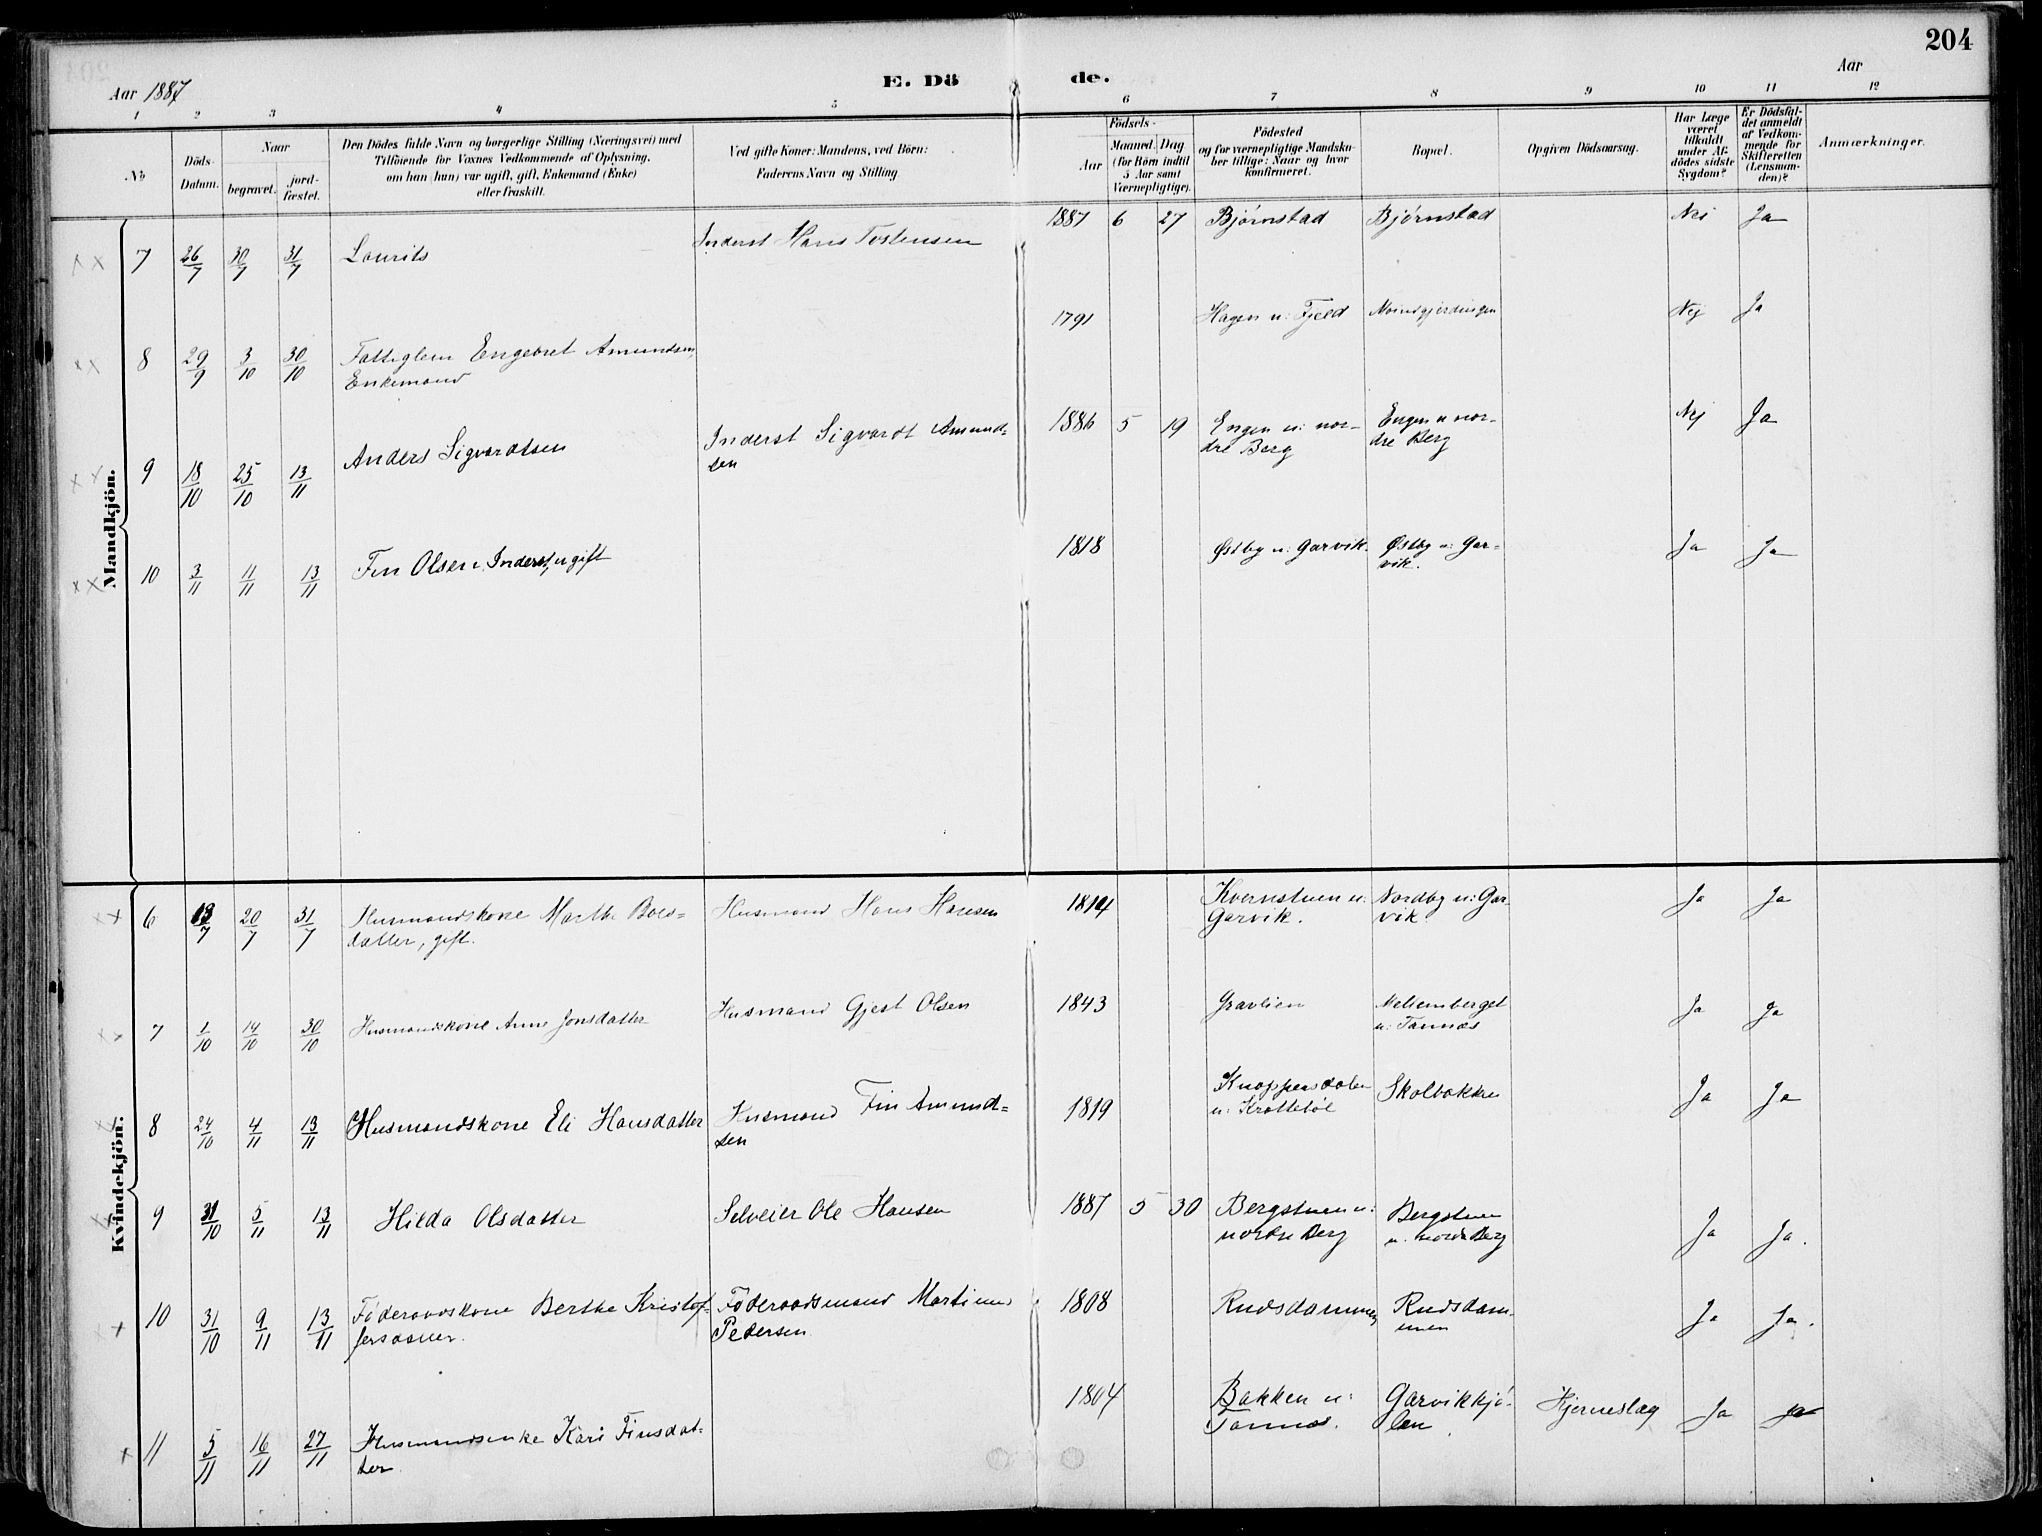 204
Aar 1887
E. Dö de.
Aar
1 2 3 4 5 6 7 8 9 10 11 12
No
Döds-
Datum.
Naar
begravet.
jord-
fæstet.
Den Dödes fulde Navn og borgerlige Stilling (Næringsvei) med
Tilföiende for Voxnes Vedkommende af Oplysning,
om han (hun) var ugift, gift, Enkemand (Enke)
eller fraskilt.
Ved gifte Koner: Mandens, ved Börn:
Faderens Navn og Stilling.
Födsels-
Aar
Maaned. Dag
(for Börn indtil
5 Aar samt
Værnepligtige).
Födested
og for værnepligtige Mandska-
ber tillige: Naar og hvor
konfirmeret.
Bopæl.
Opgiven Dödsaarsag.
Har Læge
været
tilkaldt
under Af-
dödes sidste
Sygdom?
Er Dödsfal-
det anmeldt
af Vedkom-
mende for
Skifteretten
(Lensman-
den)?
Anmærkninger.
Mandkjön.
7 26/7 30/7 31/7 Laurits Inderst Hans Tostensen 1887 6 27 Bjørnstad Bjørnstad Nei Ja
8 29/9 3/10 30/10 Fattiglem Engebret Amundsen, 1791 Hagen u: Fjeld Nei Ja
Enkemand
9 18/10 25/10 13/11 Anders Sigvardtsen Inderst Sigvardt Amund- 1886 5 19 Engen u: nor- Engen u nor- Nej Ja
sen dre Berg dre Berg
10 3/11 11/11 13/11 Fin Olsen, Inderst, ugift 1818 Østby u: Garvik. Østby u: Gar- Ja Ja
vik.
Kvindekjön.
6 13/7 20/7 31/7 Husmandskone Marthe Boes- Husmand Hans Hansen 1814 Kvernstuen u: Nordby u: Gar- Ja Ja
datter, gift. Garvik. vik.
7 1/10 14/10 30/10 Husmandskone Anne Jonsdatter Husmand Gjest Olsen 1843 Gravlien Melumberget Ja Ja
u: Tannæs
8 24/10 4/11 13/11 Husmandskone Eli Hansdatter Husmand Fin Amund- 1819 Knappersdalen Skolbakken Ja Ja
sen u: Krøttetøl
9 31/10 5/11 13/11 Hilda Olsdatter Selveier Ole Hansen 1887 5 30 Bergstuen u: Bergstuen Ja Ja.
nordre Berg u. nordre Berg
10 31/10 9/11 13/11 Føderaadskone Berthe Kristof- Føderaadsmand Martinus 1808 Rudsdammen Rudsdam- Ja Ja.
fersdatter. Pedersen. men
11 5/11 16/11 27/11 Husmandsenke Kari Finsdat- 1804 Bakken u: Garvikkjø- Hjerneslag Ja Ja
ter. Tannæs. len.